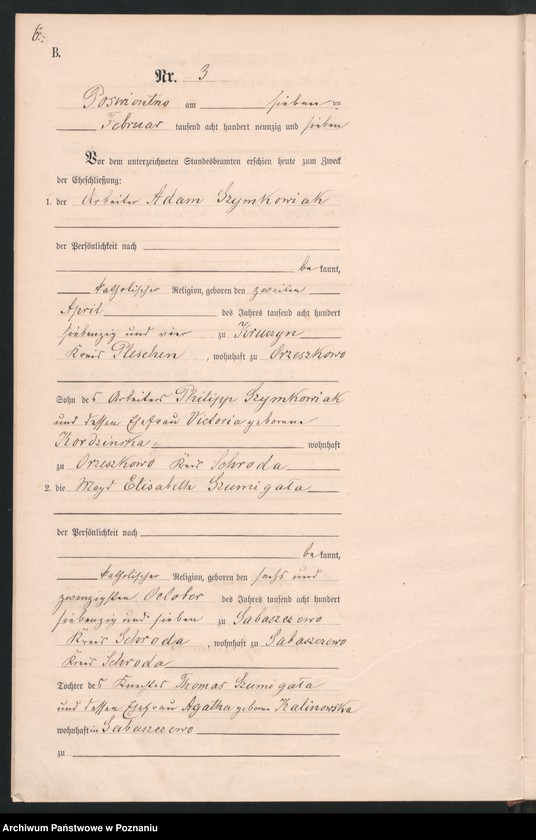 6.
B.
Nr. 3
Poswiontno am sieben ten
Februar tausend acht hundert neunzig und sieben
Vor dem unterzeichneten Standesbeamten erschien heute zum Zweck
der Eheschließung:
1. der Arbeiter Adam Szymkowiak
der Persönlichkeit nach
be kannt,
katholischer Religion, geboren den zweiten
April des Jahres tausend acht hundert
siebenzig und vier zu Kruczyn
Kreis Pleschen, wohnhaft zu Orzeszkowo
Sohn des Arbeiters Philipp Szymkowiak
und dessen Ehefrau Victoria geborene
Kordzinska wohnhaft
zu Orzeszkowo Kreis Schroda
2. die Magd Elisabeth Szumigała
der Persönlichkeit nach
be kannt,
katholischer Religion, geboren den sechs und
zwanzigsten October des Jahres tausend acht hundert
siebenzig und sieben zu Sabaszczewo
Kreis Schroda, wohnhaft zu Sabaszczewo
Kreis Schroda
Tochter des Knechtes Thomas Szumigała
und dessen Ehefrau Agatha geborene Kalinowska
wohnhaft in Sabaszczewo
zu
Archiwum Państwowe w Poznaniu